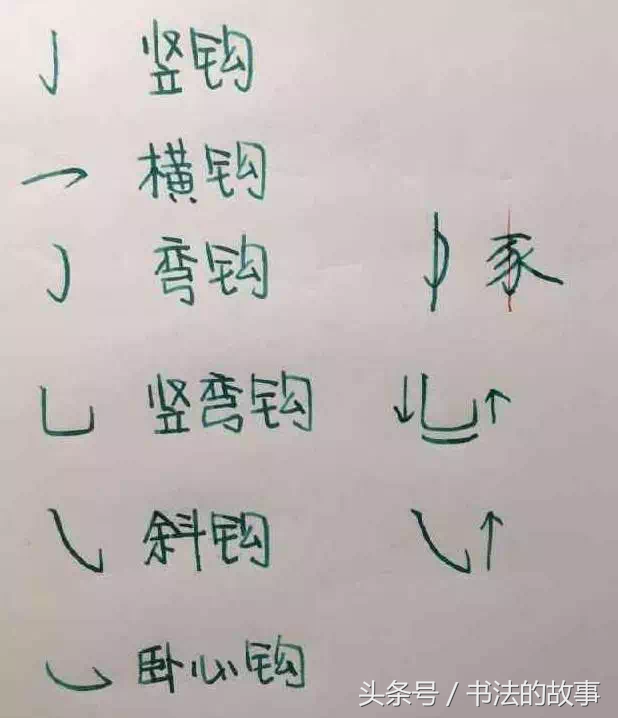 竖钩
横钩
弯钩 豕
竖弯钩
斜钩
卧心钩
头条号 / 书法的故事